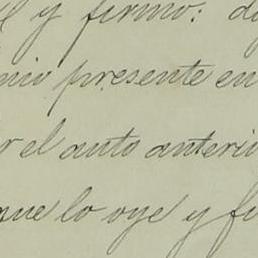 y firmo: d
mio presente en
r el auto anterio
que lo oye y fi